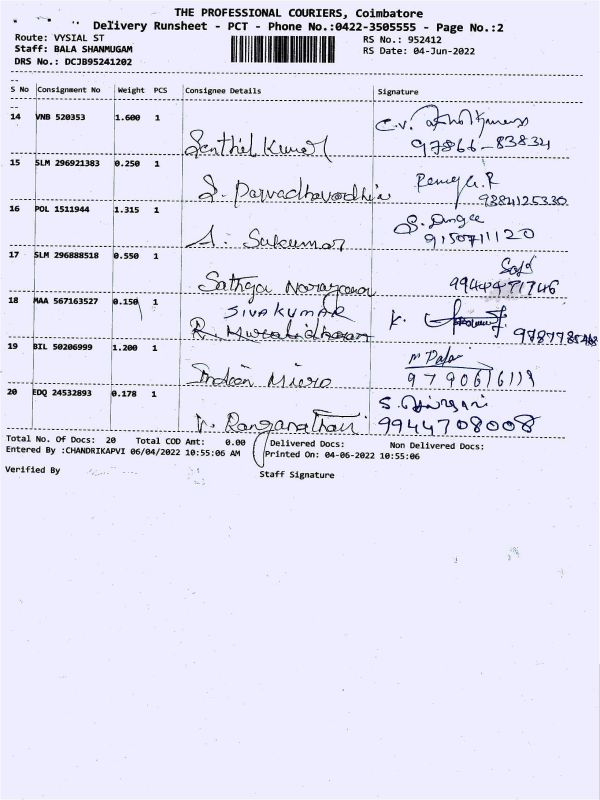 THE PROFESSIONAL COURIERS, Coimbatore
Delivery Runsheet - PCT - Phone No.:0422-3505555 - Page No.:2
Route: VYSIAL ST
RS No.: 952412
Staff: BALA SHANMUGAM
RS Date: 04-Jun-2022
DRS No.: DCJB95241202
S No Consignment No Weight PCS Consignee Details Signature
14 VNB 520353 1.600 1
Senthil Kumar 97866-83834
15 SLM 296921383 0.250 1
9384125330
16 POL 1511944 1.315 1
A. Sukumar 9150711120
17 SLM 296888518 0.550 1
Sathya Narayanan 9944971746
18 MAA 567163527 0.150 1
SIVAKUMAR
R. Muralidharan K.
19 BIL 50206999 1.200 1
Indian Micro
20 EDQ 24532893 0.178 1
V. Ranganathan 9944708008
Total No. Of Docs: 20 Total COD Amt: 0.00 Delivered Docs: Non Delivered Docs:
Entered By :CHANDRIKAPVI 06/04/2022 10:55:06 AM Printed On: 04-06-2022 10:55:06
Verified By Staff Signature